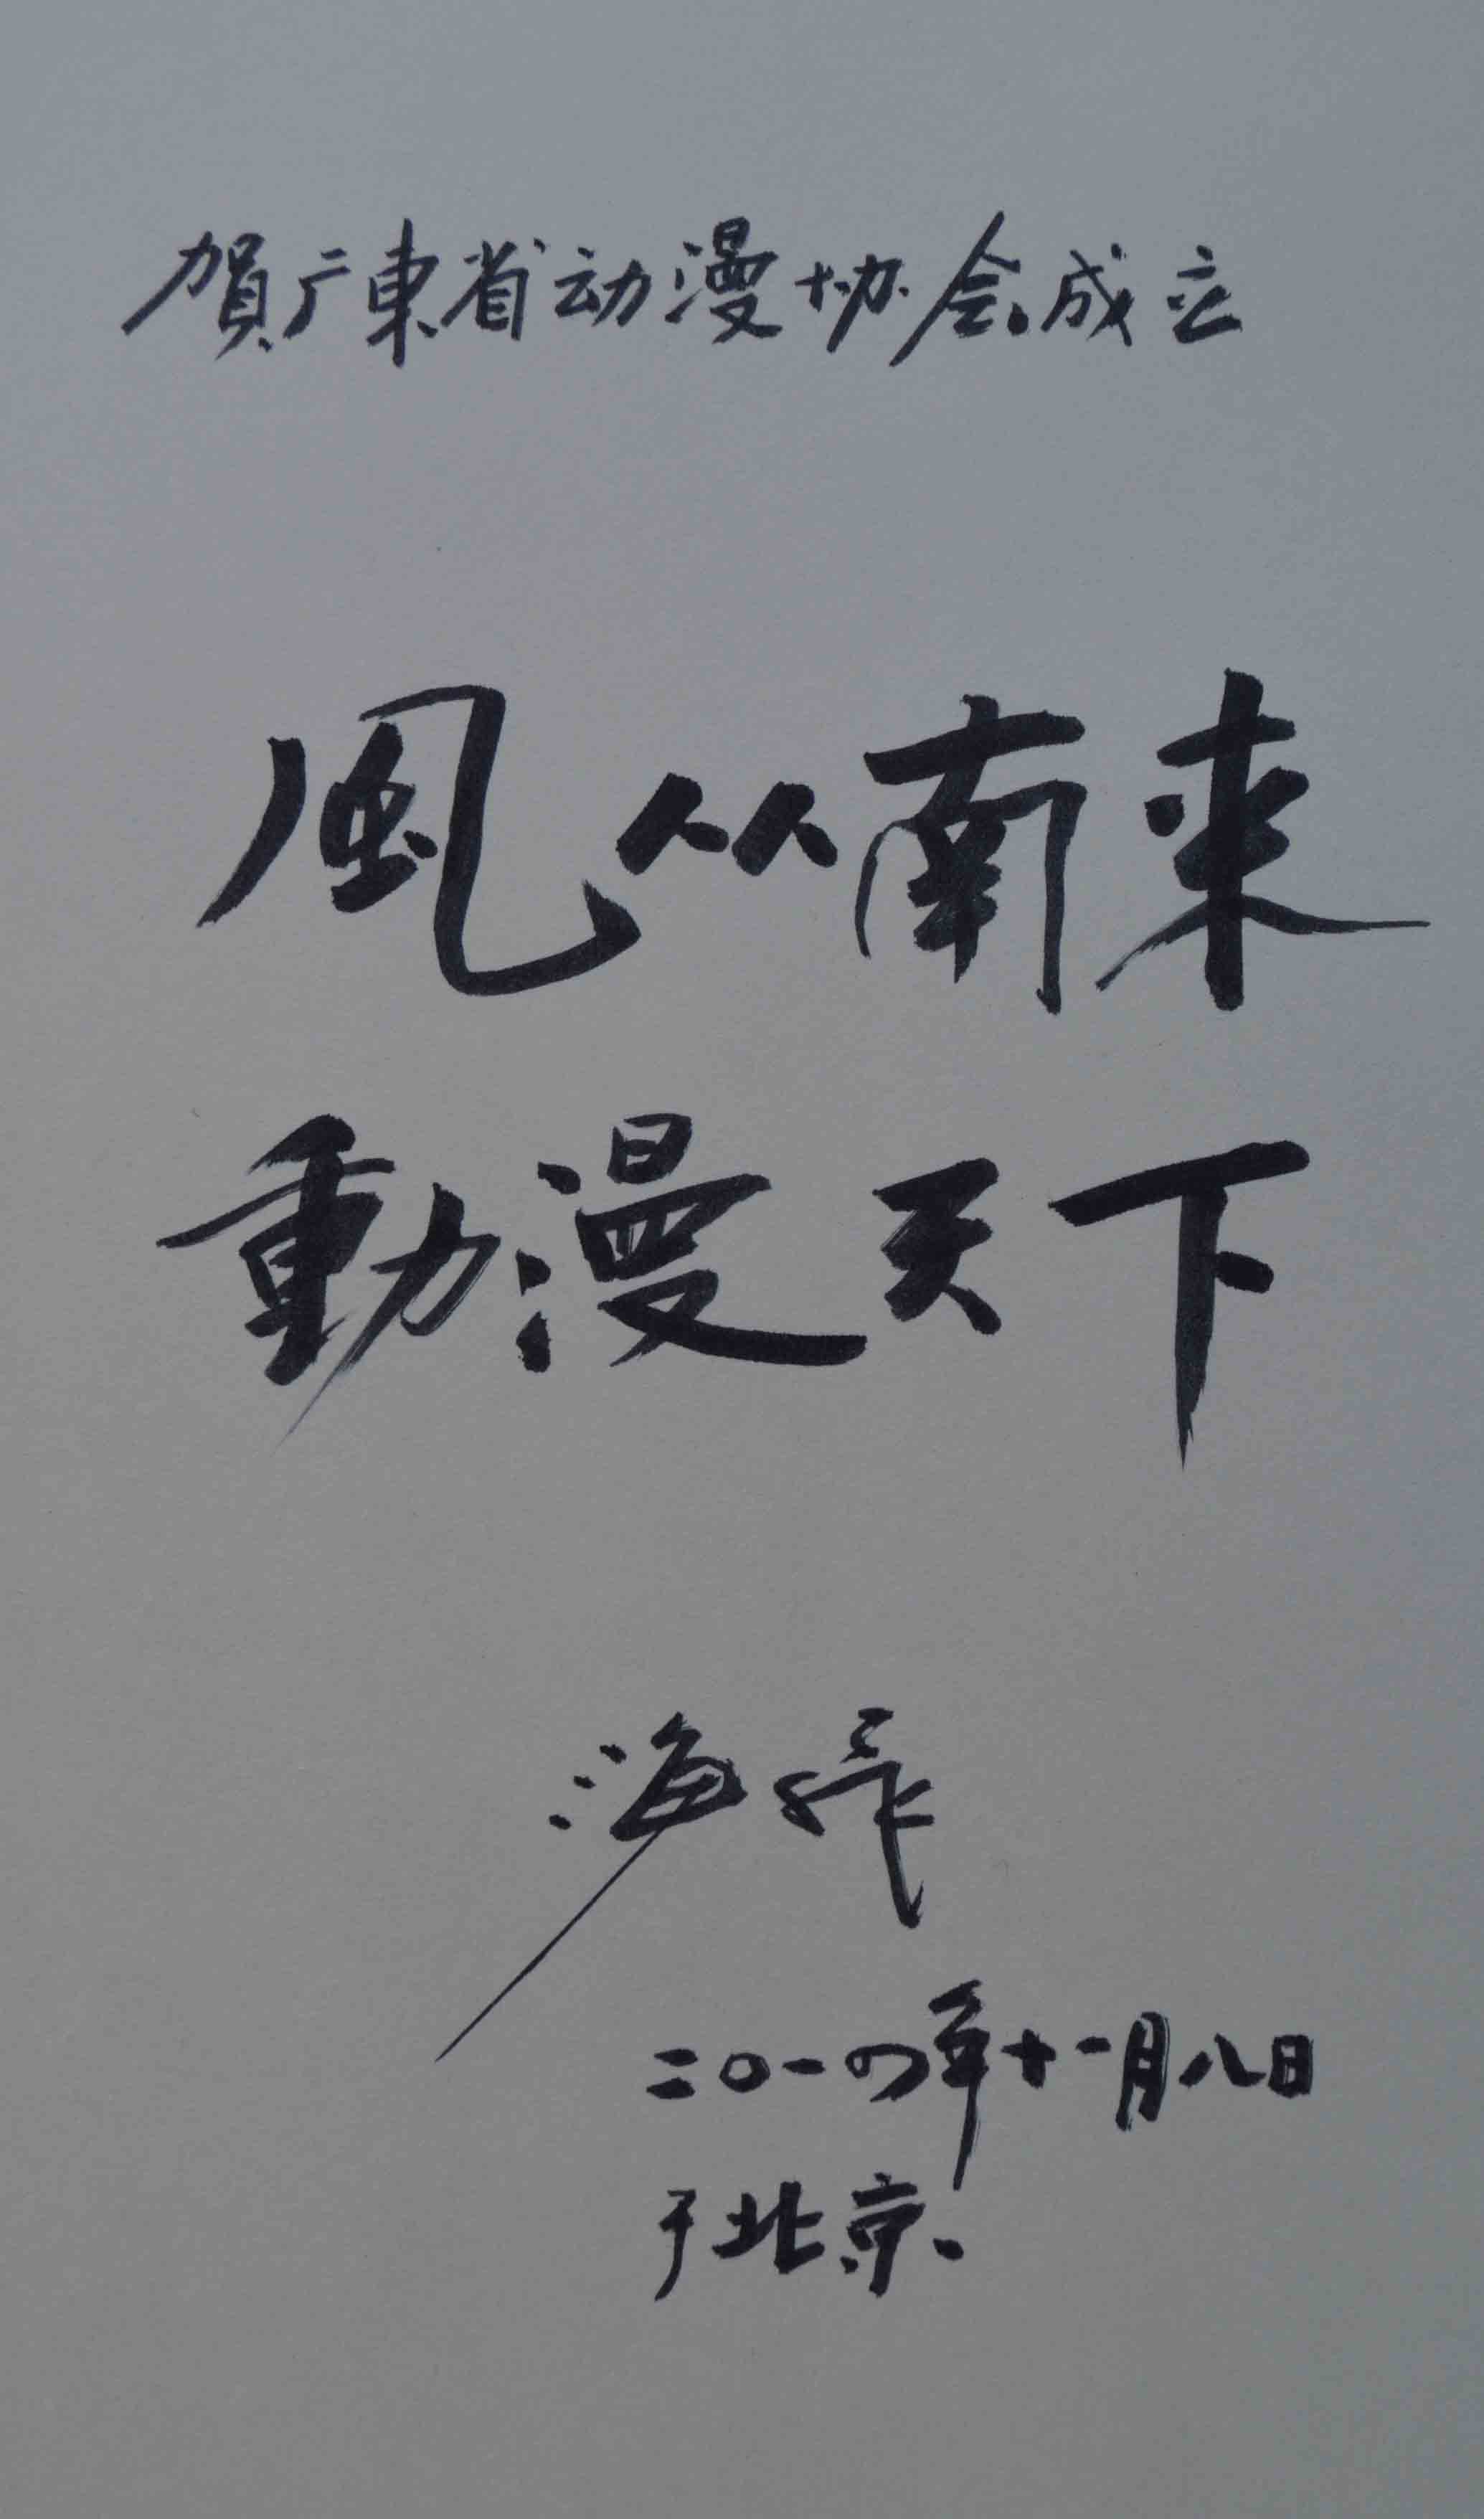 賀广東省动漫协会成立
風从南来
動漫天下
海
二〇一四年十一月八日
于北京